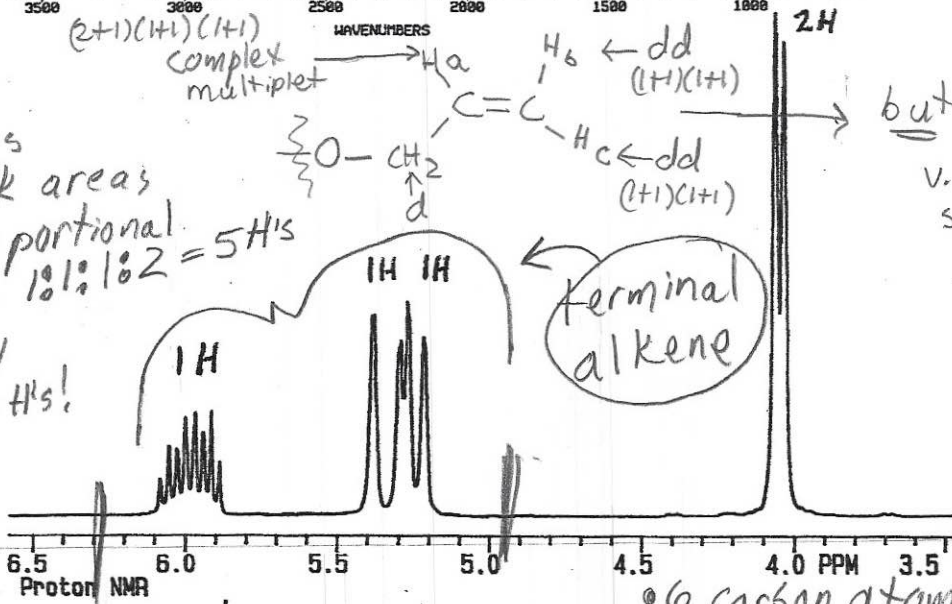 3500 3000 2500 2000 1500 1000
WAVENUMBERS
(2+1)(1+1)(1+1)
complex
multiplet
Ha
Hb ← dd
(1+1)(1+1)
C=C
Hc ← dd
(1+1)(1+1)
O— CH2
d
2H
but
v.
s
s
k areas
portional
1:1:1:2 = 5H's
H's!
terminal
alkene
1H
1H 1H
6.5 6.0 5.5 5.0 4.5 4.0 PPM 3.5
Proton NMR
•6 carbon atom